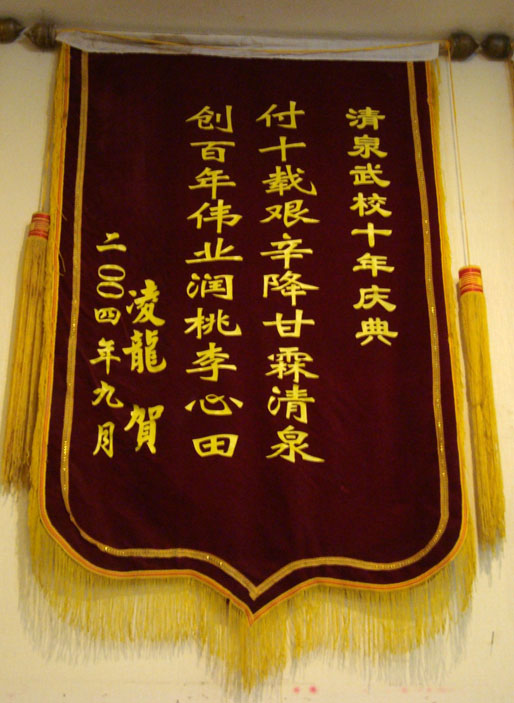 清泉武校十年庆典
付十载艰辛降甘霖清泉
创百年伟业润桃李心田
凌龍 贺
二〇〇四年九月